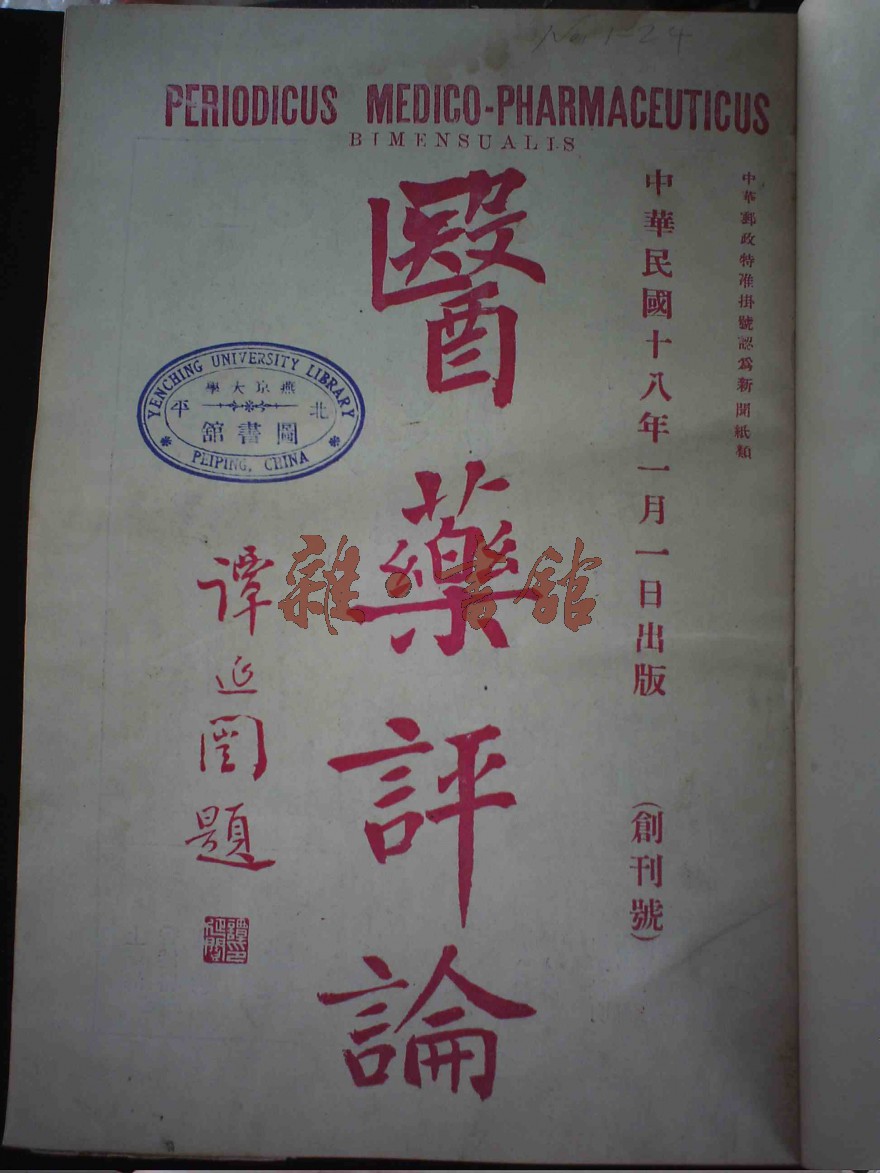 No 1-24
PERIODICUS MEDICO-PHARMACEUTICUS
BIMENSUALIS
中華郵政特准掛號認爲新聞紙類
中華民國十八年一月一日出版
(創刊號)
醫藥評論
譚延闓題
譚延闓印
YENCHING UNIVERSITY LIBRARY
燕京大學
北平
圖書館
PEIPING, CHINA
雜·書館